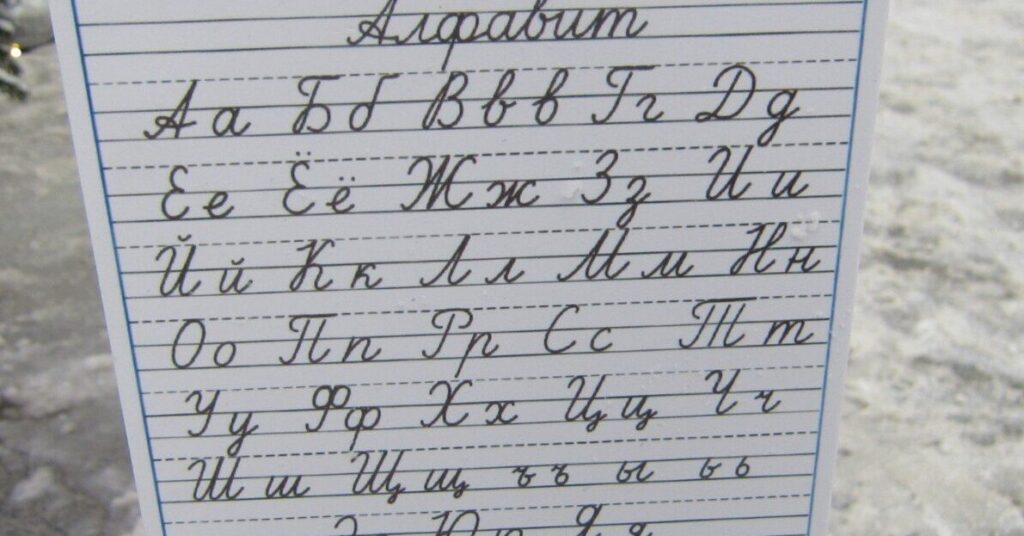 Алфавит
Аа Бб Ввв Гг Дд
Ее Ёё Жж Зз Ии
Йй Кк Лл Мм Нн
Оо Пп Рр Сс Тт
Уу Фф Хх Цц Чч
Шш Щщ ъъ ы ьь
Э Юю Яя